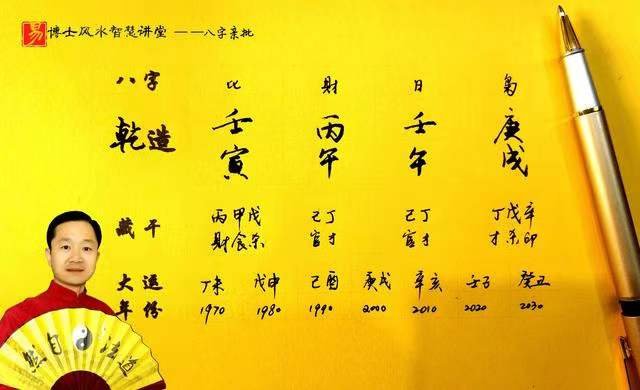 易 博士风水智慧讲堂 ——八字亲批
八字 比 財 日 枭
乾造 壬寅 丙午 壬午 庚戌
藏干 丙甲戊 己丁 己丁 丁戊辛
財食杀 官才 官才 才杀印
大运 丁未 戊申 己酉 庚戌 辛亥 壬子 癸丑
年份 1970 1980 1990 2000 2010 2020 2030
然自法道